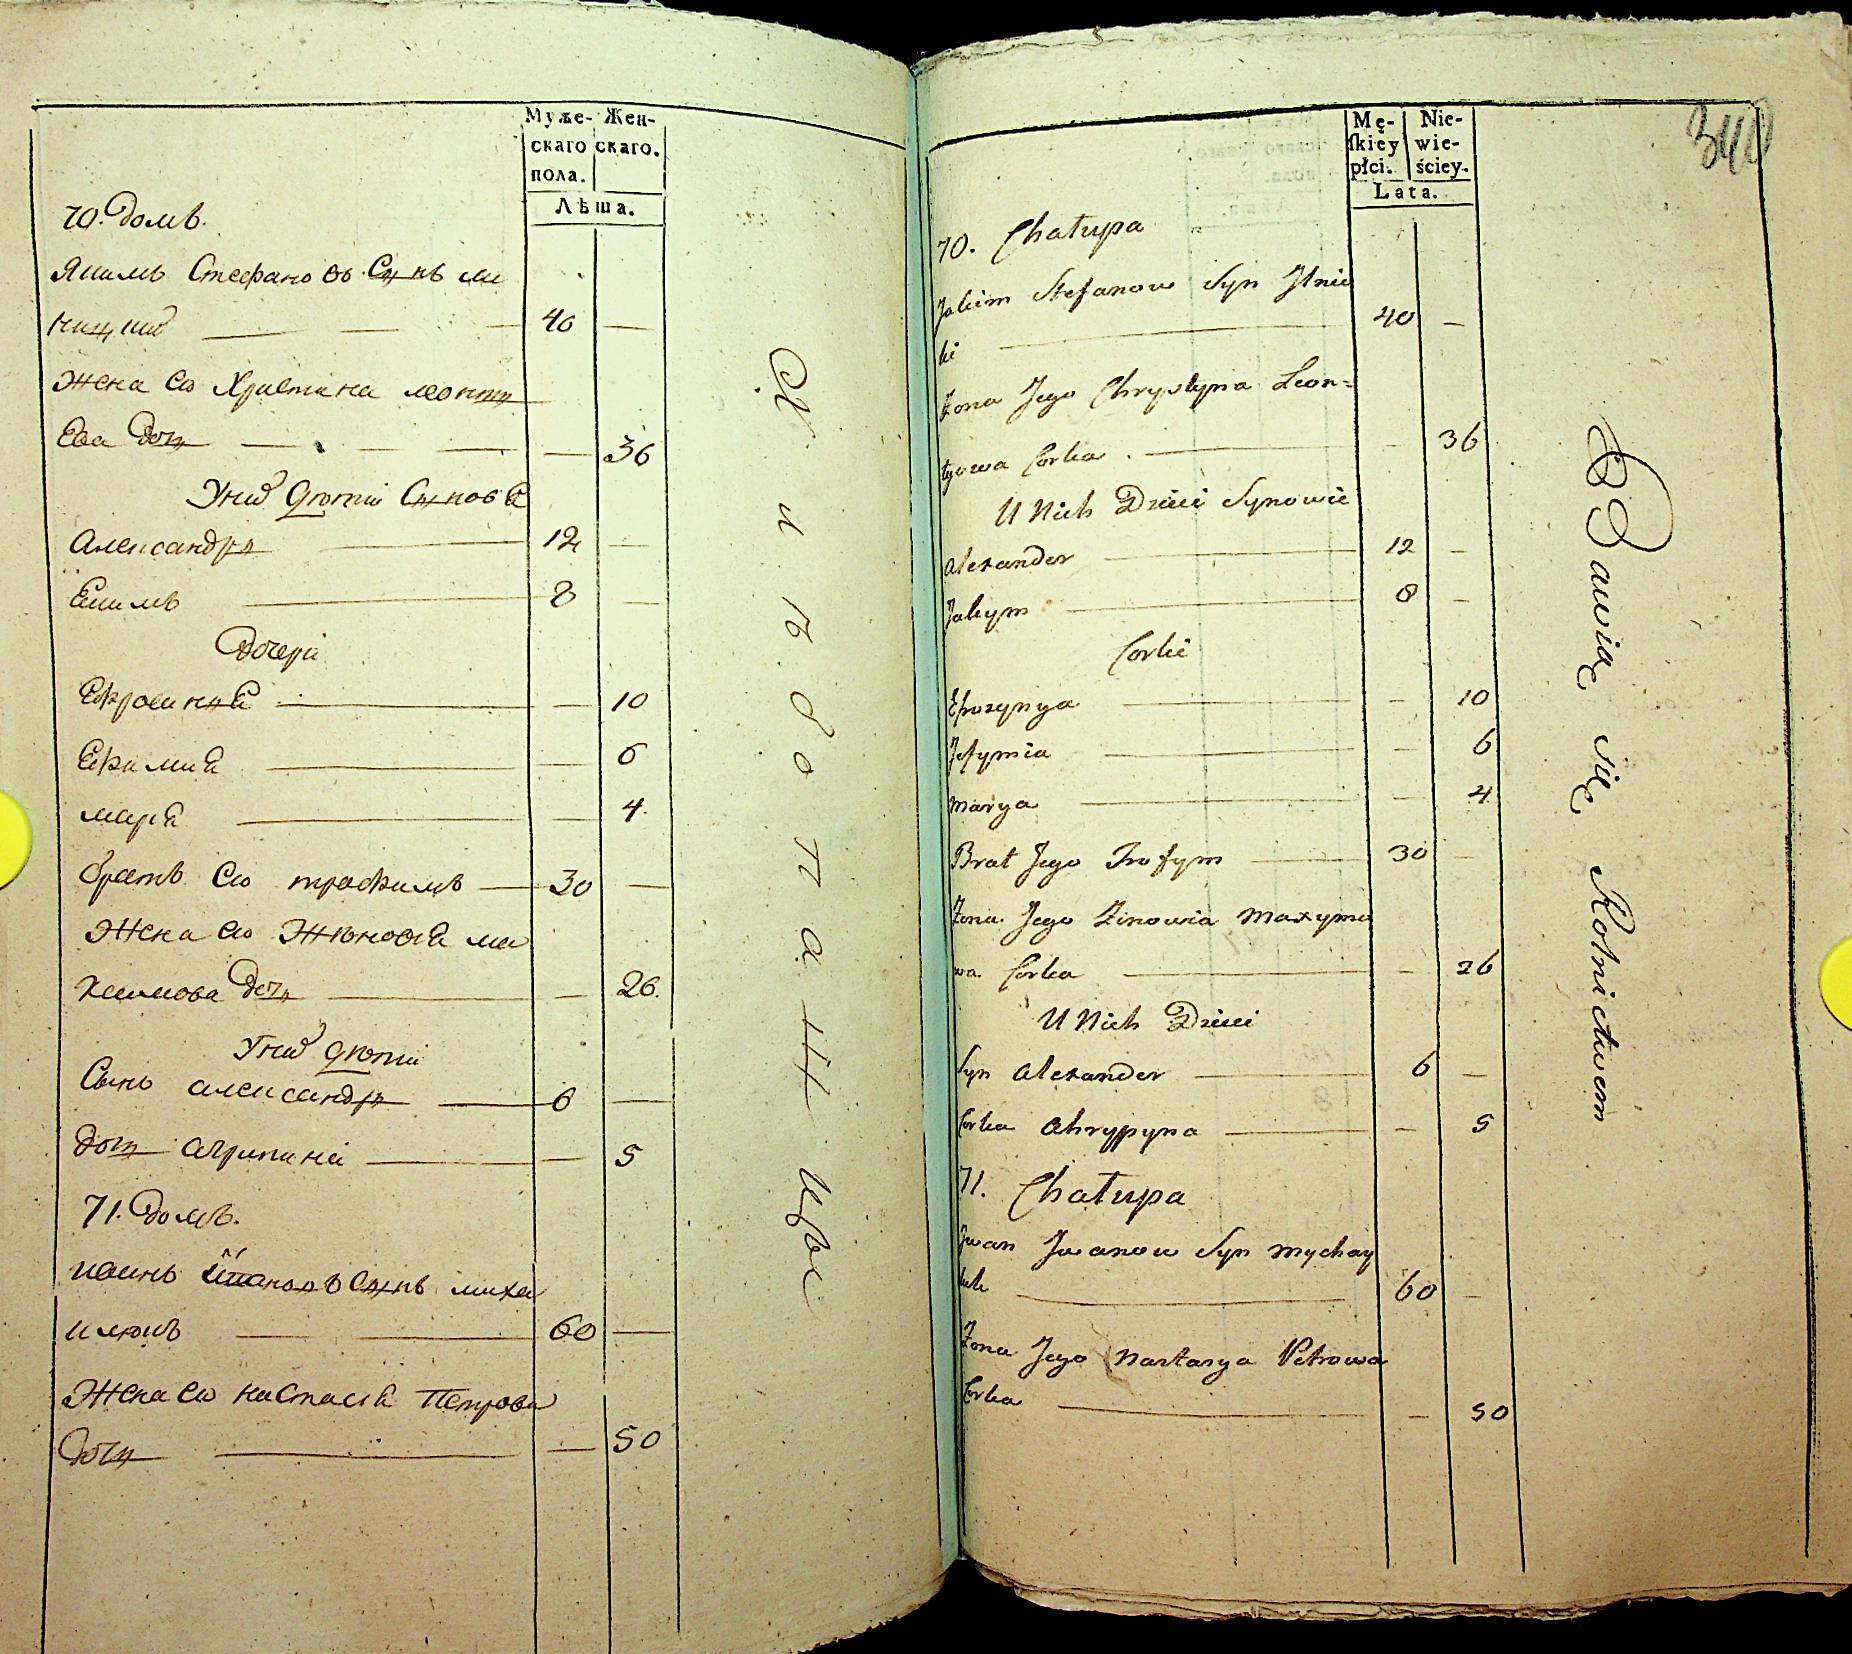 Муже- Жен-
скаго скаго.
пола.
Лѣта.
70. домъ.
Якимъ Стефановъ Сынъ
40
жена ево Христина леонти
Ева дочь 36
Униⷯ дѣти Сынове
Александръ 12
Екимъ 8
дочери
Ефросиниа 10
Ефимиа 6
мариа 4
братъ ево трофимъ 30
жена ево Жѣновиа ма
ксимова дочь 26.
Униⷯ дѣти
Сынъ александръ 6
дочь агрипина 5
71. домъ.
иванъ Сынъ миха
илюкъ 60
жена ево настасиа Петрова
дочь 50
Хлѣбопашцы
340
Mę- Nie-
ſkiey wie-
płci. ściey.
Lata.
70. Chałupa
Jakim Stefanow Syn Ilnic
ki 40
Zona Jego Chrystyna Leon=
tyowa Corka 36
U Nich Dzieci Synowie
Alexander 12
Jakym 8
Corki
Efrozynya 10
Jefymia 6
Marya 4
Brat Jego Trofym 30
Zona Jego Zinowia Maxymo
wa Corka 26
U Nich Dzieci
Syn Alexander 6
Corka Ahrypyna 5
71. Chałupa
Jwan Jwanow Syn Mychay
luk 60
Zona Jego Nastasya Petrowa
Corka 50
Bawią się Rolnictwem